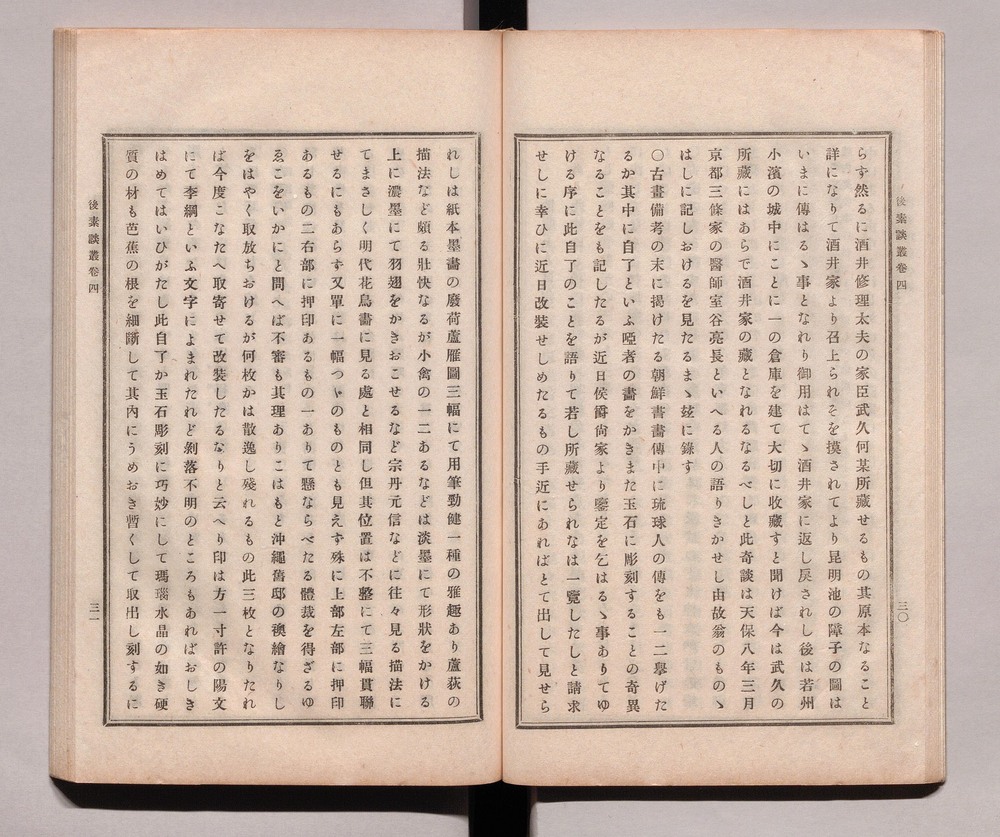 後素談叢卷四
三〇
らす然るに酒井修理太夫の家臣武久何某所藏せるもの其原本なること
詳になりて酒井家より召上られそを摸されてより昆明池の障子の圖は
いまに傳はるゝ事となれり御用はてゝ酒井家に返し戾されし後は若州
小濱の城中にことに一の倉庫を建て大切に收藏すと聞けば今は武久の
所藏にはあらで酒井家の藏となれるなるべしと此奇談は天保八年三月
京都三條家の醫師室谷亮長といへる人の語りきかせし由故翁のものゝ
はしに記しおけるを見たるまゝ玆に錄す
〇古畫備考の末に揭けたる朝鮮書畫傳中に琉球人の傳をも一二擧げた
るか其中に自了といふ啞者の畫をかきまた玉石に彫刻することの奇異
なることをも記したるが近日侯爵尙家より鑒定を乞はるゝ事ありてゆ
ける序に此自了のことを語りて若し所藏せられなは一覽したしと請求
せしに幸ひに近日改裝せしめたるもの手近にあればとて出して見せら
れしは紙本墨畵の廢荷蘆雁圖三幅にて用筆勁健一種の雅趣あり蘆荻の
描法など頗る壯快なるが小禽の一二あるなどは淡墨にて形狀をかける
上に濃墨にて羽翅をかきおこせるなど宗丹元信などに往々見る描法に
てまさしく明代花鳥畵に見る處と相同し但其位置は不整にて三幅貫聯
せるにもあらす又單に一幅つゝのものとも見えす殊に上部左部に押印
あるもの二右部に押印あるもの一ありて懸ならべたる體裁を得ざるゆ
ゑこをいかにと問へば不審も其理ありこはもと沖繩舊邸の襖繪なりし
をはやく取放ちおけるが何枚かは散逸し殘れるもの此三枚となりたれ
ば今度こなたへ取寄せて改裝したるなりと云へり印は方一寸許の陽文
にて李綱といふ文字によまれたれど剝落不明のところもあればおしき
はめてはいひがたし此自了か玉石彫刻に巧妙にして瑪瑙水晶の如き硬
質の材も芭蕉の根を細斷して其內にうめおき暫くして取出し刻するに
後素談叢卷四
三一